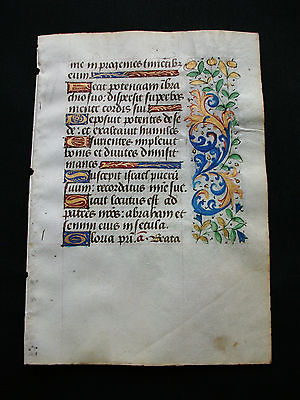 me in progenies timentib
eum.
Fecit potentiam in bra
chio suo: dispersit superbos
mente cordis sui
Deposuit potentes de se
de: et exaltavit humiles
Esurientes implevit
bonis et divites dimisit
inanes
Suscepit israel pueru
suum: recordatus mie sue
Sicut locutus est ad
patres nros: abraham et
semini eius in secula.
Gloria pri. a. Beata